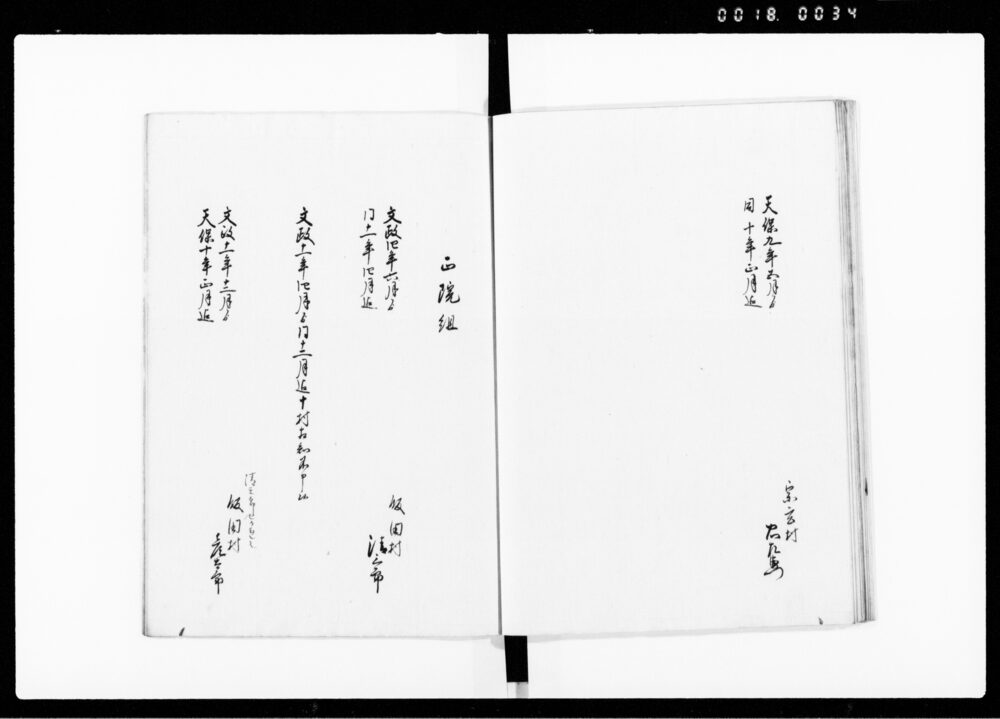 0018. 0034
天保九年五月ゟ
同十年正月迄
宗玄村
正院組
文政四年六月ゟ
同十一年四月迄
飯田村
清三郎
文政十一年四月ゟ同十二月迄十村相知不申候
文政十一年十二月ゟ
天保十年正月迄
飯田村
彦三郎